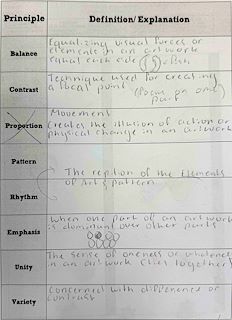 Principle Definition/ Explanation
Balance
Equalizing visual forces or
elements in an artwork
equal each side
Contrast
Technique used for creating
a focal point (focus on one
part
Proportion
Movement
Creates the illusion of action or
physical change in an artwork
Pattern
The repition of the Elements
of Art & pattern
Rhythm
Emphasis
When one part of an artwork
is dominant over other parts
Unity
The sense of oneness or wholeness
in an artwork (ties together)
Variety
Concerned with difference or
contrast